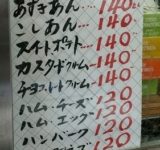 あずきあん 140
こしあん 140
スイートポテト 140
カスタードクリーム 140
チョコレートクリーム 140
ハム・チーズ 120
ハム・エッグ 120
ハンバーグ 120
120